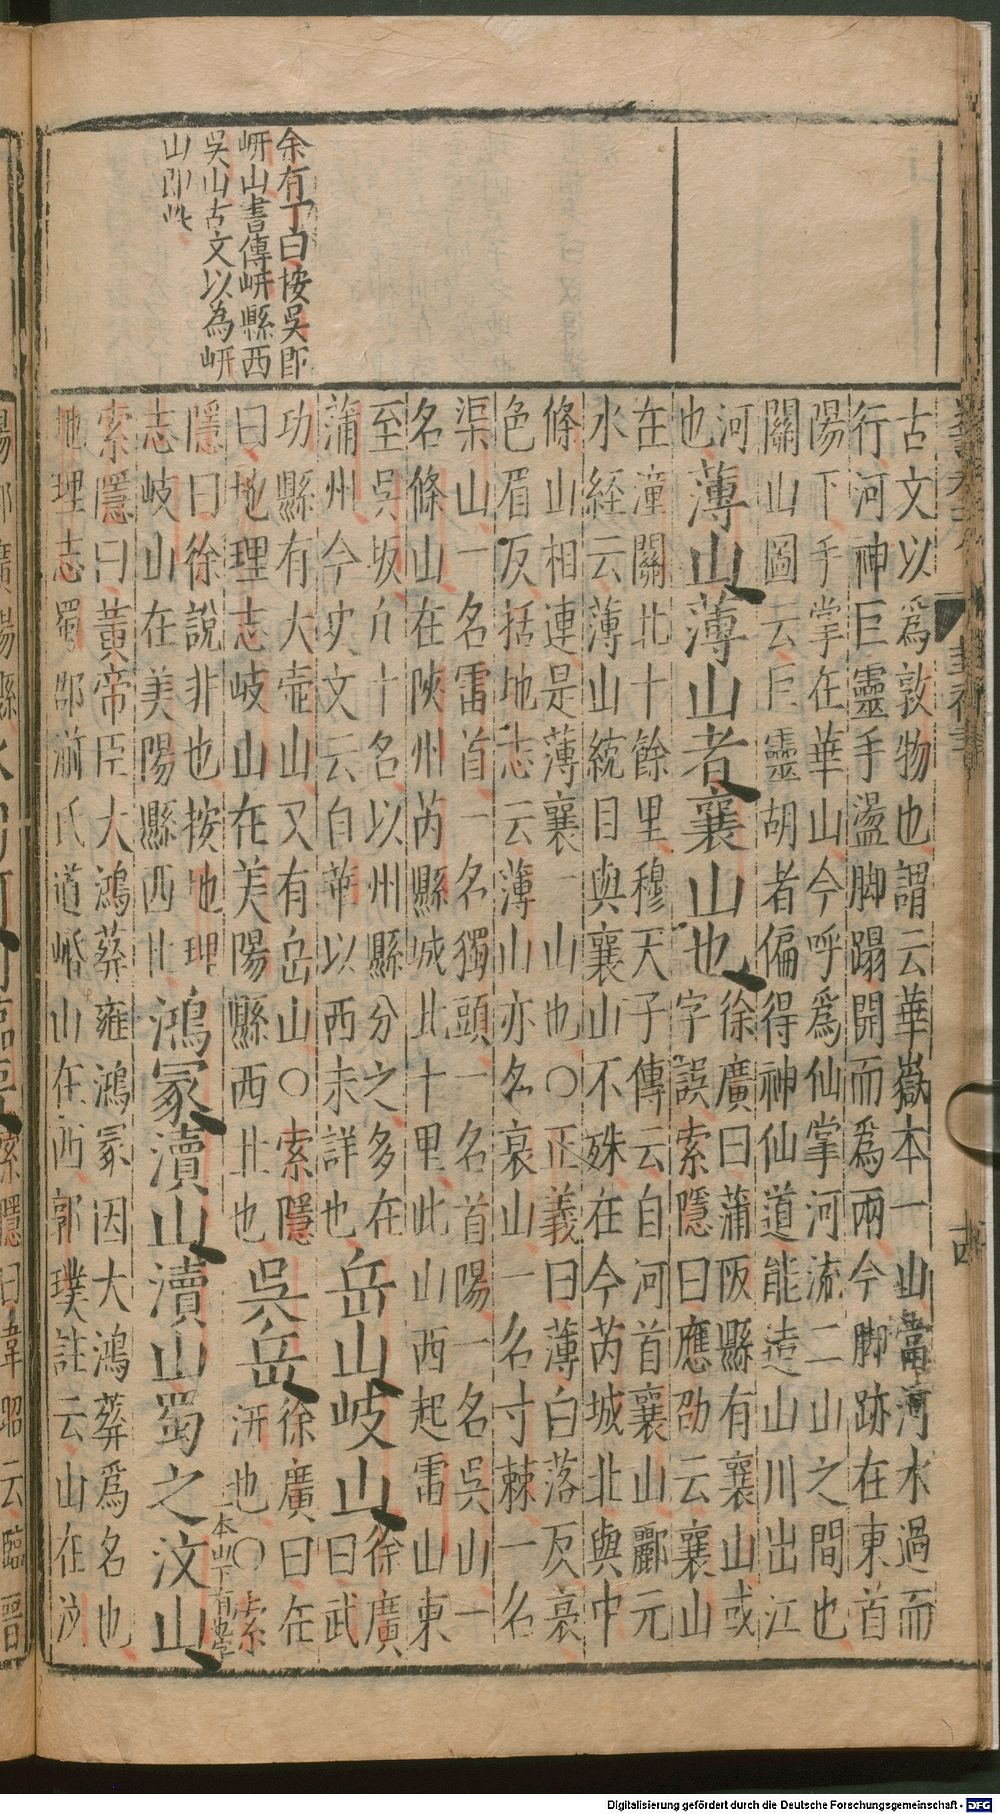 余有丁曰按吳即
岍山書傳岍縣西
吳山古文以為岍
山即此
封禪書
古文以爲敦物也謂云華嶽本一山當河水過而
行河神巨靈手盪脚蹋開而爲兩今脚跡在東首
陽下手掌在華山今呼爲仙掌河流二山之間也
關山圖云巨靈胡者偏得神仙道能造山川出江
河
也
薄山薄山者襄山也
徐廣曰蒲阪縣有襄山或
字誤索隱曰應劭云襄山
在潼關北十餘里穆天子傳云自河首襄山酈元
水経云薄山統目與襄山不殊在今芮城北與中
條山相連是薄襄一山也○正義曰薄白落反衰
色眉反括地志云薄山亦名衰山一名寸棘一名
渠山一名雷首一名獨頭一名首陽一名吳山一
名條山在陝州芮縣城北十里此山西起雷山東
至吳坂凢十名以州縣分之多在
蒲州今史文云自華以西未詳也
岳山岐山
徐廣
曰武
功縣有大壺山又有岳山○索隱
曰地理志岐山在美陽縣西北也
吳岳
徐廣曰在
汧也○索
一本山下有也字
隱曰徐說非也按地理
志岐山在美陽縣西北
鴻冢瀆山瀆山蜀之汶山
索隱曰黃帝臣大鴻葬雍鴻冢因大鴻葬爲名也
地理志蜀郡湔氏道㟭山在西郭璞註云山在汶
索隱曰韋昭云臨晉
Digitalisierung gefördert durch die Deutsche Forschungsgemeinschaft - DFG